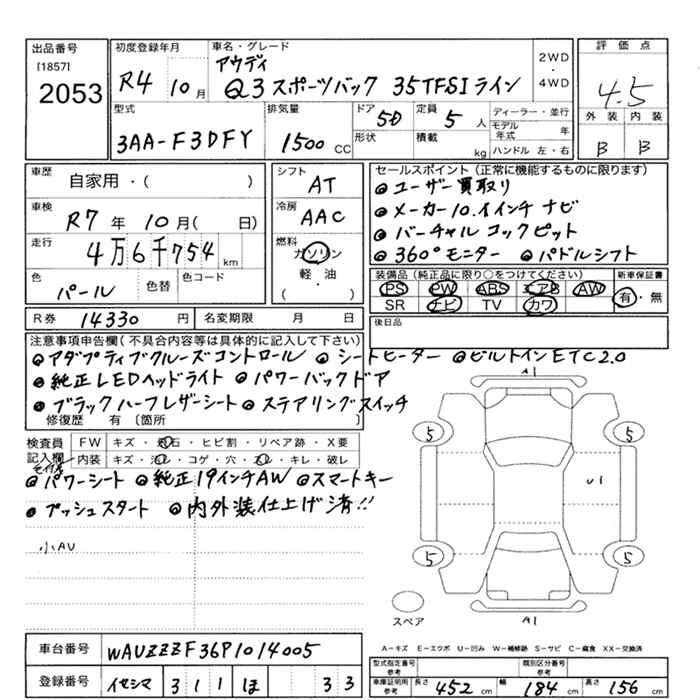 出品番号
[1857]
2053
初度登録年月
R4 10月
車名・グレード
アウディ
Q3 スポーツバック 35TFSI ライン
2WD
・
4WD
評価点
4.5
外装 内装
B B
型式
3AA-F3DFY
排気量
1500 cc
ドア
5D
形状
定員
5人
積載
kg
ディーラー・並行
モデル年式 年
ハンドル 左・右
車歴
自家用・( )
車検
R7年10月( 日)
走行
4万6千754km
色
パール
色替
色コード
シフト
AT
冷房
AAC
燃料
ガソリン
軽・油
・( )
セールスポイント(正常に機能するものに限ります)
◎ユーザー買取り
◎メーカー10.1インチナビ
◎バーチャルコックピット
◎360°モニター ◎パドルシフト
装備品(純正品に限り○をつけてください)
PS PW ABS エアB AW
SR ナビ TV カワ
新車保証書
有・無
R券 14330円
名変期限 月 日
後日品
注意事項申告欄(不具合内容等は具体的に記入して下さい)
◎アダプティブクルーズコントロール ◎シートヒーター ◎ビルトインETC2.0
◎純正LEDヘッドライト ◎パワーバックドア
◎ブラックハーフレザーシート ◎ステアリングスイッチ
修復歴 有 〔箇所
検査員
記入欄
FW キズ・飛石・ヒビ割・リペア跡・X要
内装 キズ・汚レ・コゲ・穴・スレ・キレ・破レ
◎パワーシート ◎純正19インチAW ◎スマートキー
◎プッシュスタート ◎内外装仕上げ済!!
小AU
A1
5 5
U1
5 5
スペア
A1
A-キズ E-エクボ U-凹み W-補修跡 S-サビ C-腐食 XX-交換済
車台番号 WAUZZZF36P1014005
登録番号 311 ほ 33
型式指定番号
参考
類別区分番号
参考
車庫証明用
参考
長さ 452cm 幅 184cm 高さ 156cm